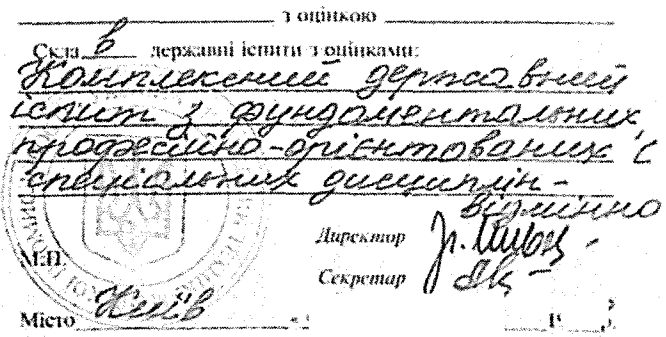 з оцінкою
Склав державні іспити з оцінками:
Комплексний державний
іспит з фундаментальних
професійно-орієнтованих і
спеціальних дисциплін -
відмінно
Директор
М.П.
Секретар
Місто Київ